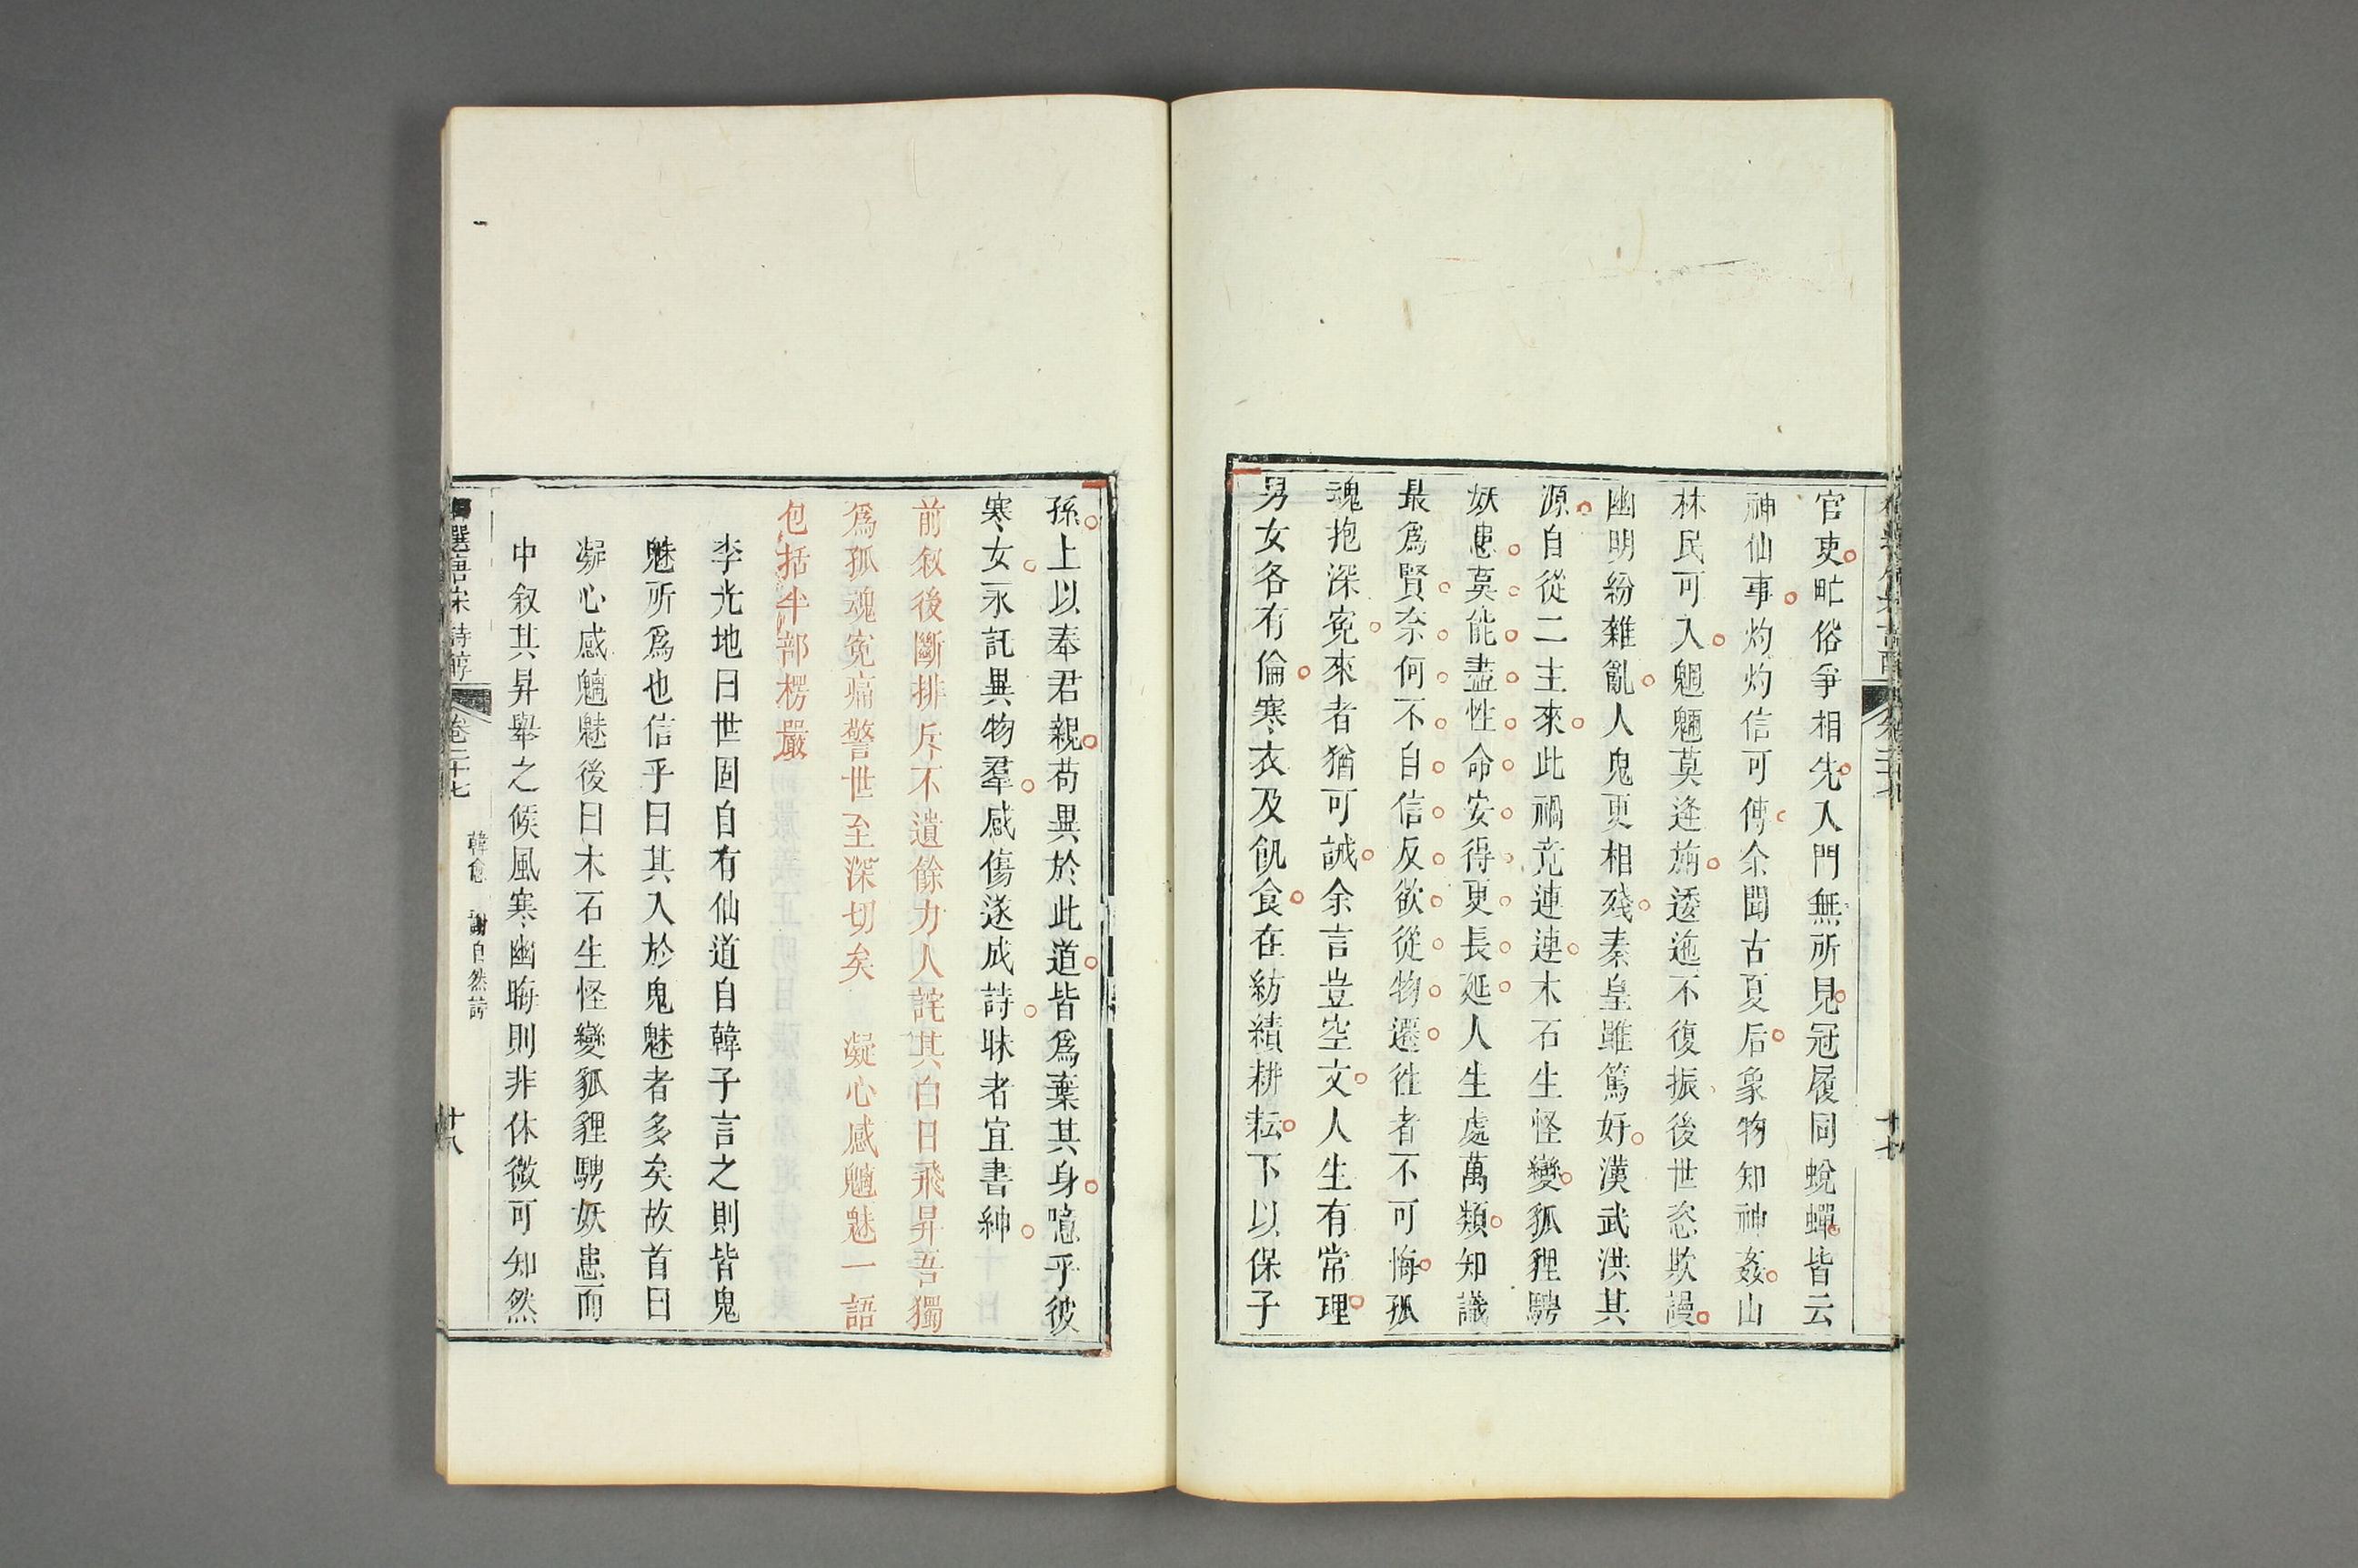 官吏甿俗爭相先入門無所見冠履同蛻蟬皆云
神仙事灼灼信可傳余聞古夏后象物知神姦山
林民可入魍魎莫逢旃逶迤不復振後世恣欺謾
幽明紛雜亂人鬼更相殘秦皇雖篤好漢武洪其
源自從二主來此禍竟連連木石生怪變狐狸騁
妖患莫能盡性命安得更長延人生處萬類知識
最爲賢奈何不自信反欲從物遷徃者不可悔孤
魂抱深寃來者猶可誡余言豈空文人生有常理
男女各有倫寒衣及飢食在紡績耕耘下以保子
孫上以奉君親苟異於此道皆爲棄其身噫乎彼
寒女永託異物羣感傷遂成詩昧者宜書紳
前叙後斷排斥不遺餘力人詫其白日飛昇吾獨
爲孤魂寃痛警世至深切矣 凝心感魑魅一語
包括半部楞嚴
李光地曰世固自有仙道自韓子言之則皆鬼
魅所爲也信乎曰其入於鬼魅者多矣故首曰
凝心感魑魅後曰木石生怪變狐狸騁妖患而
中叙其昇舉之候風寒幽晦則非休徵可知然
選唐宋詩醇 卷二十七 韓愈 謝自然詩 十八